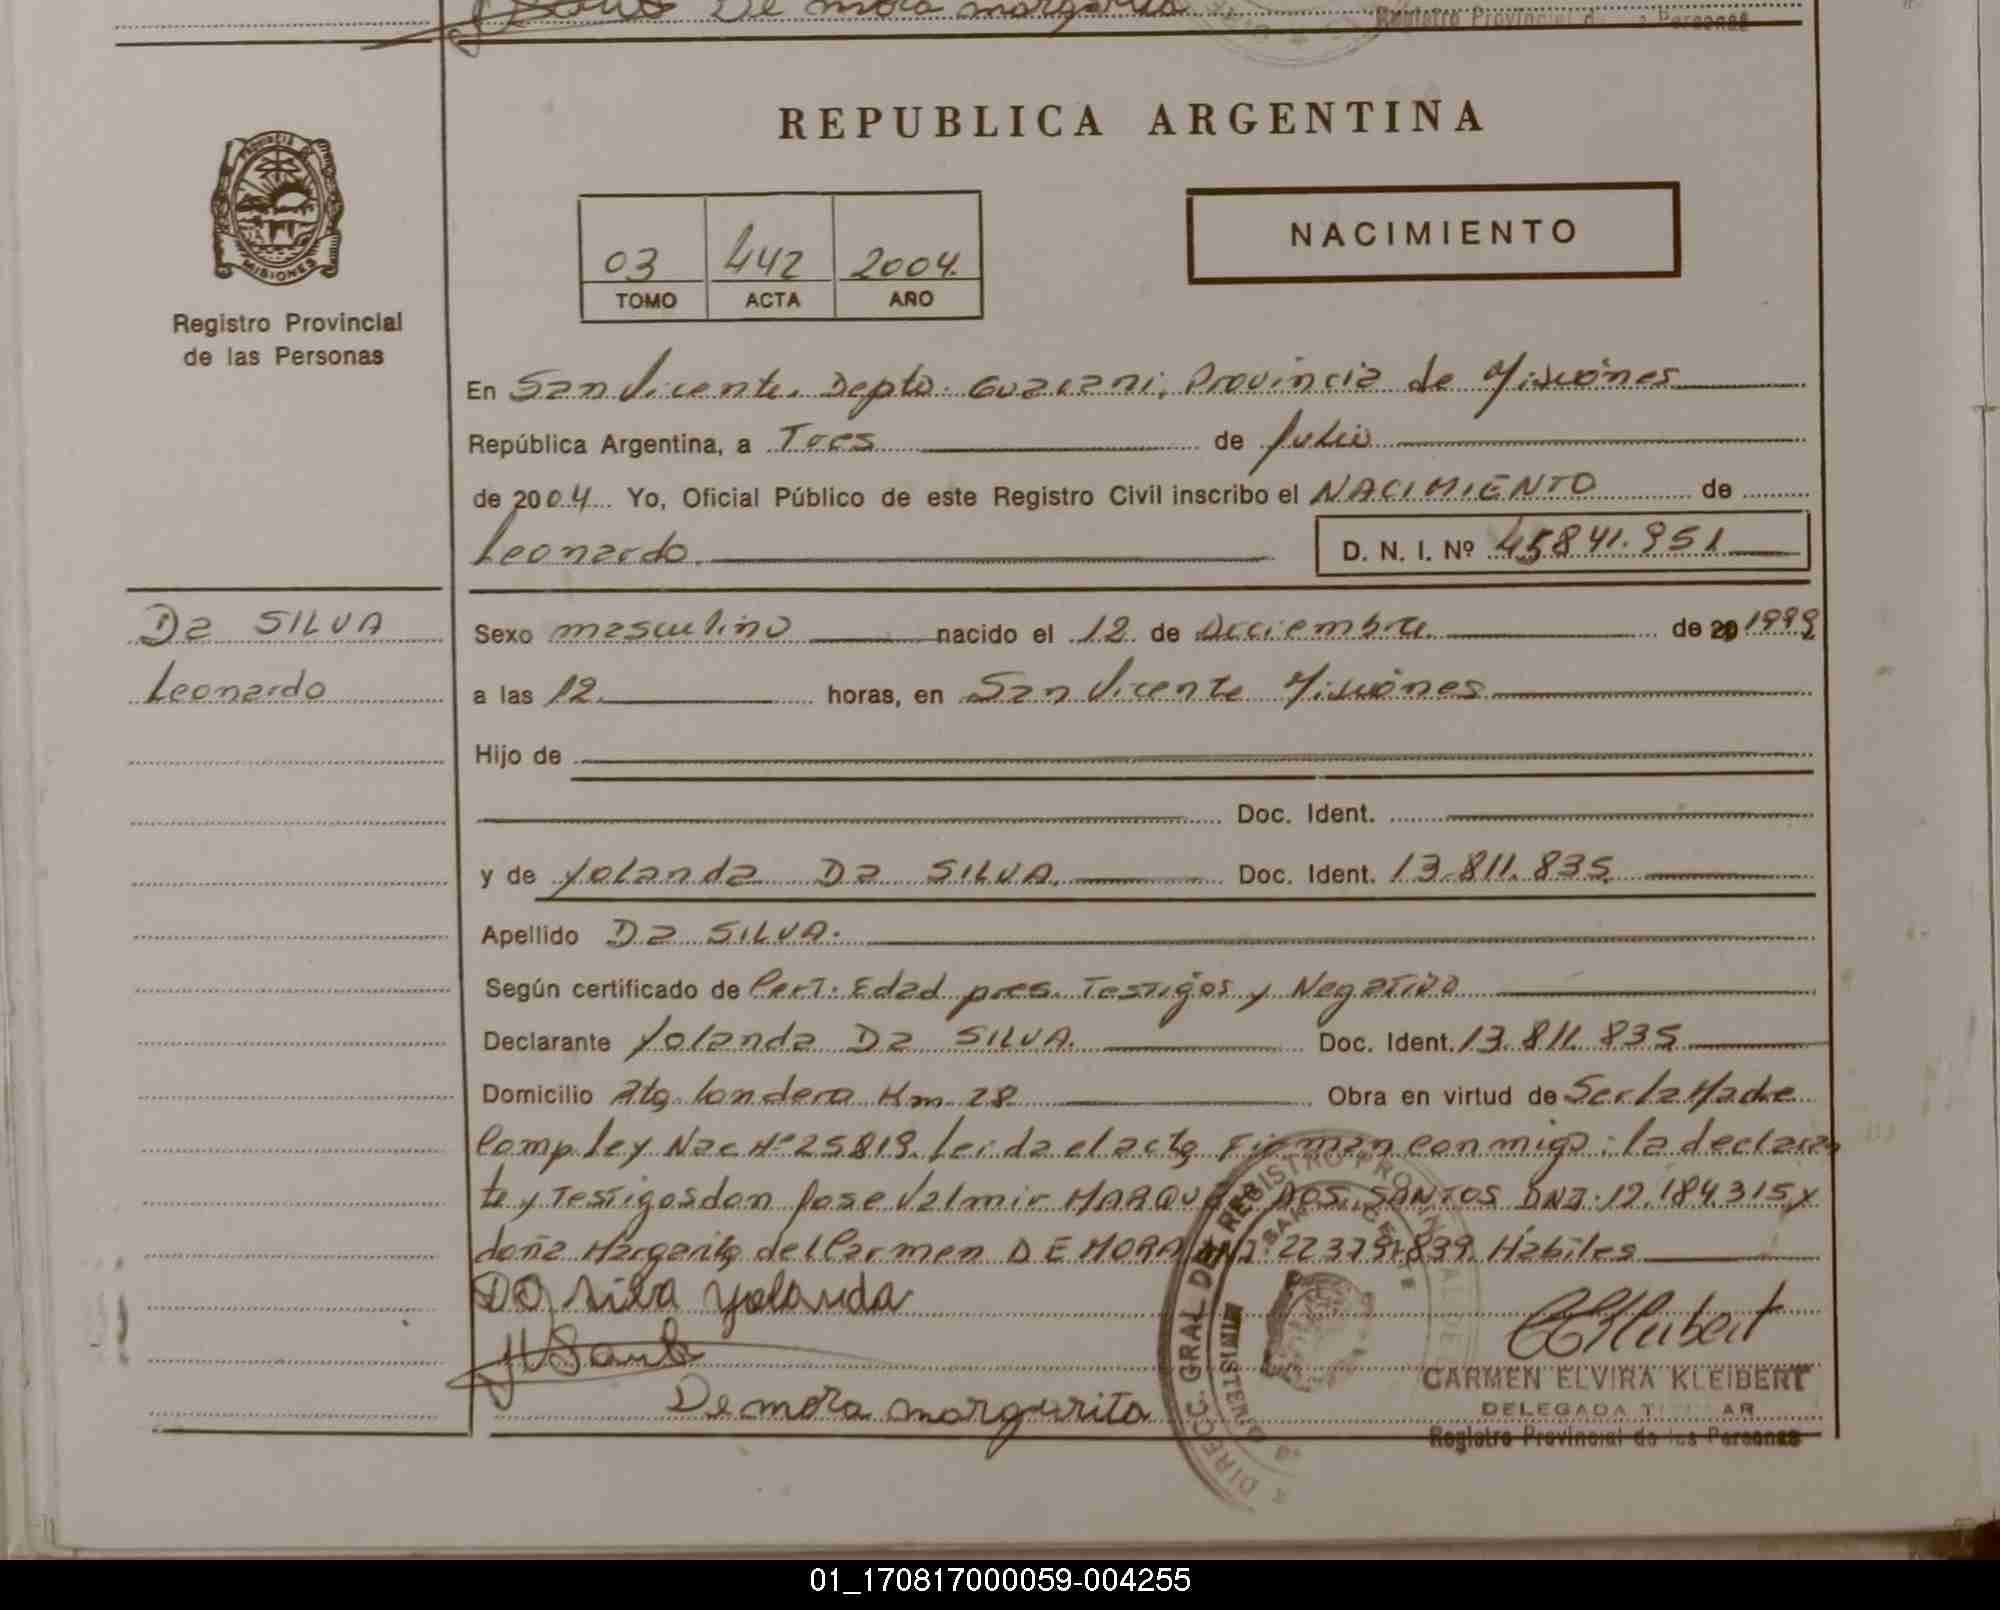 De mora margarita
Registro Provincial de Personas
REPUBLICA ARGENTINA
PROVINCIA DE
MISIONES
Registro Provincial
de las Personas
NACIMIENTO
03 442 2004.
TOMO ACTA AÑO
En San Vicente. Depto. Guarani. Provincia de Misiones
República Argentina, a Tres de Julio
de 2004 Yo, Oficial Público de este Registro Civil inscribo el NACIMIENTO de
Leonardo. D. N. I. Nº 45841.951
Da SILVA
Leonardo
Sexo masculino nacido el 12 de Diciembre de 20 1999
a las 12 horas, en San Vicente Misiones
Hijo de
Doc. Ident.
y de Yolanda Da SILVA. Doc. Ident. 13.811.835.
Apellido Da SILVA.
Según certificado de Cert. Edad pres. Testigos y Negativo
Declarante Yolanda Da SILVA. Doc. Ident. 13.811.835
Domicilio Km. 28 Obra en virtud de Ser la Madre
Comp. ley Nac Nº 25819. leida el acta Firman conmigo: la declaran
te y Testigos don Jose Valmir MARQUES DOS SANTOS DNI. 19.184.315 y
doña Margarita del Carmen DE MORA DNI. Hábiles
Da silva yolanda
De mora margarita
DIRECC. GRAL DE REGISTRO PROVINCIAL DE
CARMEN ELVIRA KLEIBERT
DELEGADA T AR
Registro Provincial de las Personas
01_170817000059-004255